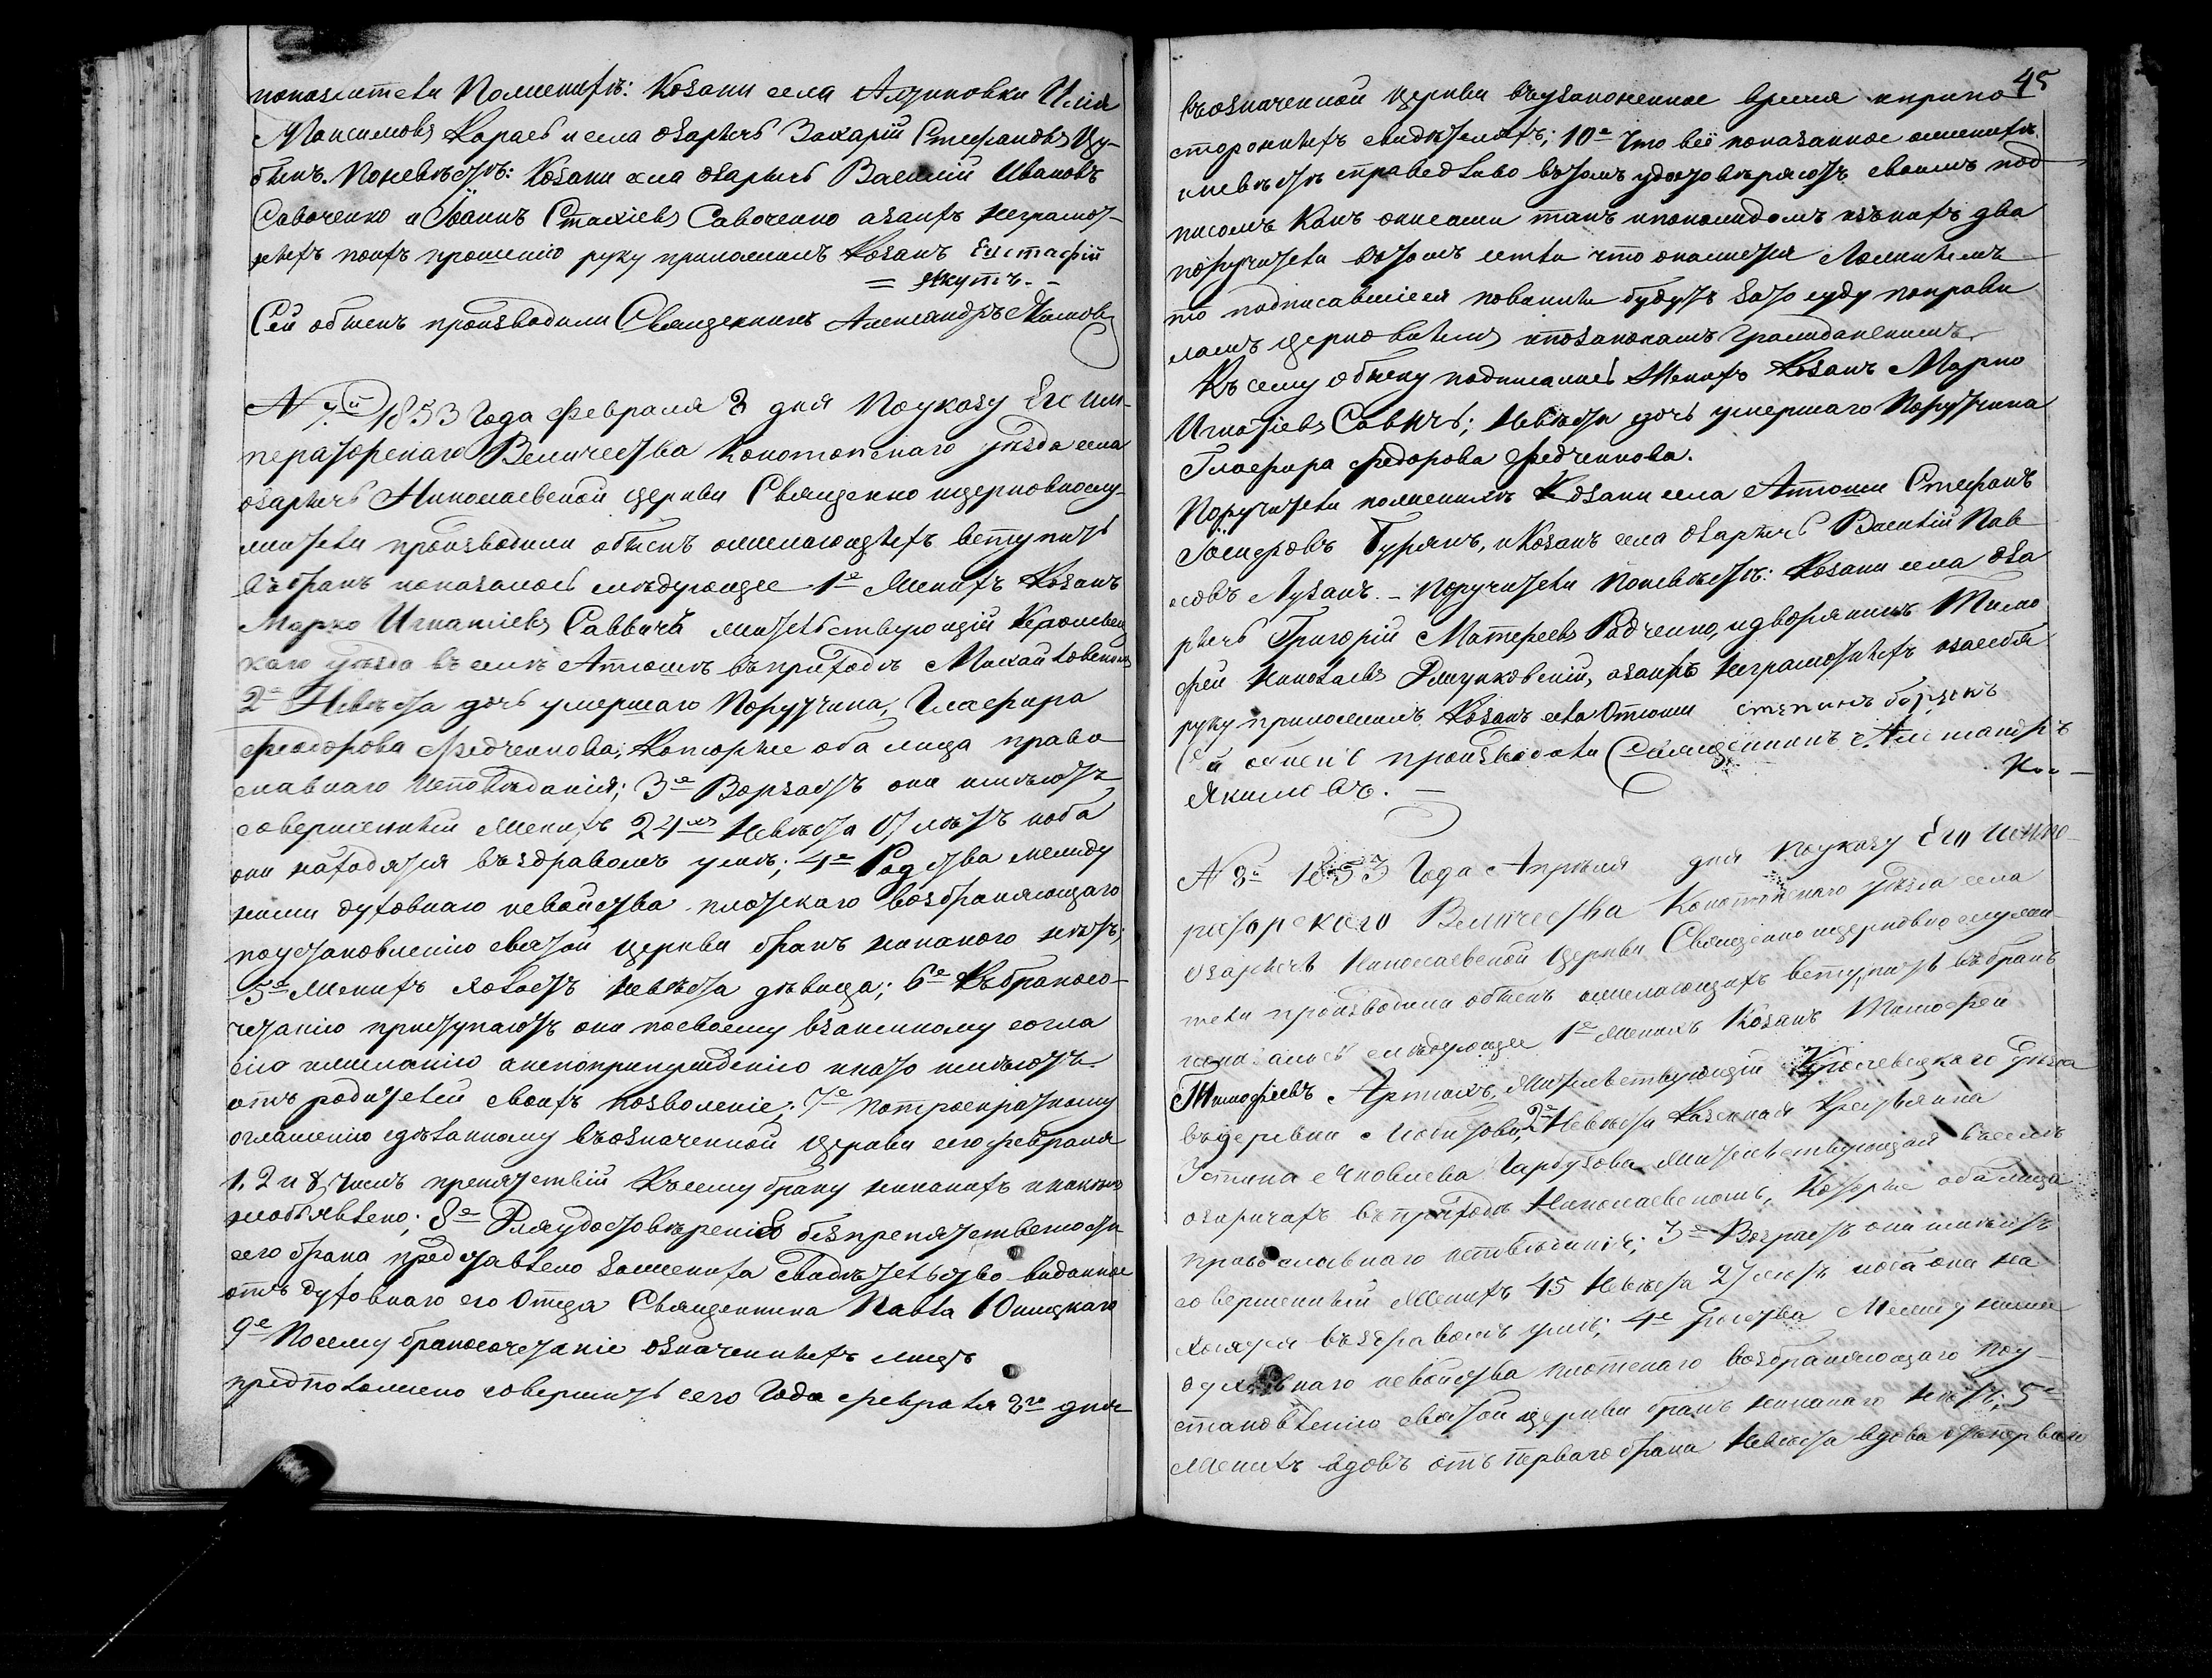 показители Поженихѣ: Козаки села Алтиновки Илія
Максимовъ Карасъ и села Озаричъ Захарій Стефановъ Цу-
быкъ. Поневѣстѣ: Козаки села Озаричъ Василій Ивановъ
Савоченко и Іоаннъ Стахіевъ Савоченко азаихъ неграмот-
ныхъ поихъ прошенію руку приложилъ Козакъ Евстафій
= Якутъ. -
Сей обыскъ производили Священникъ Александръ Якимовъ
N 7й 1853 Года февраля 8 дня Поуказу Его Им-
ператорскаго Величества Конотопскаго уѣзда села
озаричъ Николаевской церкви Священно ицерковнослу-
жители производили обыскъ ожелающихъ вступить
въбракъ показалось слѣдующее 1е Женихъ Козакъ
Марко Игнатіевъ Саввичъ жительствующій Кролевец
каго уѣзда въ селѣ Атюшѣ въприходѣ Михайловскомъ
2е Невѣста дочь умершаго Поручика, Глафира
Феодорова Федченкова, Которые оба лица право
славнаго исповѣданія; 3е Возрастъ они имѣютъ
совершенный Женихъ 24 Невѣста 17 лѣтъ иоба
они находятся въздравомъ умѣ; 4е Родства между
ними духовнаго исвойства плотскаго возбраняющаго
поустановленію святой церкви бракъ никакого нѣтъ;
5е Женихъ холостъ невѣста дѣвица; 6е Къбракосо-
четанію приступаютъ они посвоему взаимному согла
сію ижеланію анепопринужденію инато имѣютъ
отъ родителей своихъ позволеніе; 7е Потроекратному
оглашенію сдѣланному въозначенной церкви сего февраля
1, 2 и 8, числъ препятствій Ксему браку никакихъ иникѣмъ
необъявлено; 8е Дляудостовѣренія безпрепятственности
сего брака представлено Зажениха Свидѣтельство виданное
отъ духовнаго его Отца Священника Павла Юницкаго
9е Посему бракосочетаніе означенныхъ лицъ
предположено совершить сего Года февраля 8го дня
45
въозначенной церкви въузаконенное время ипрыпо
стороннихъ свидѣтеляхъ; 10е Что всё показанное оженихѣ
иневѣстѣ справедливо вътомъ удостовѣряютъ своимъ под
писомъ Какъ онисами такъ ипокаждомъ изънихъ два
поручители вътомъ если что окажется Ложнымъ
то подписавшіеся повинны будутъ зато суду поправи
ламъ церковнымъ ипозаконамъ гражданскимъ
Къ сему обыску подписались Женихъ Козакъ Марко
Игнатіевъ Савичъ; Невѣста дочь умершаго Поручика
Глафира Федорова Федченкова.
Поручители поженихѣ Козаки села Атюши Стефанъ
Іосифовъ Бурякъ, и Козакъ села Озаричъ Василій Пав
ловъ Лузанъ. - Поручители Поневѣстѣ: Козаки села Оза
ричъ Григорій Матфеевъ Радченко, идворянинъ Тимо
фей Николаевъ Ржуховскій, азаихъ Неграмотныхъ изасебя
руку приложилъ Козакъ села Отюши степанъ борякъ
Сей обыскъ производили Священникъ Александръ
Якимовъ. -
N 8й 1853 Года Апрѣля дня Поуказу Его Импе-
раторского Величества Конотопскаго уѣзда села
Озаричъ Николаевской Церкви Священно ицерковнослужи-
тели производили обыскъ ожелающихъ вступить въбракъ
показалось слѣдующее 1е Женихъ Козакъ Тимофей
Тимофѣевъ Артюхъ, Жительствующій Кролевецкаго Уѣзда
въдеревни Любитовѣ, 2е Невѣста Казенная Крестьянка
Устина Яковлева Гарбузова Жительствующая въселѣ
озаричахъ въприходѣ Николаевскомъ, Которые оба лица
православнаго исповѣданія; 3е Возрастъ они имѣютъ
совершенный Женихъ 45 Невѣста 27 лѣтъ иоба они на
ходятся въздравомъ умѣ; 4е Родства Между ними
духовнаго исвойства плотскаго возбраняющаго поу-
становленію святой церкви бракъ никакаго нѣтъ; 5е
Женихъ вдовъ отъ перваго брака Невѣста вдова